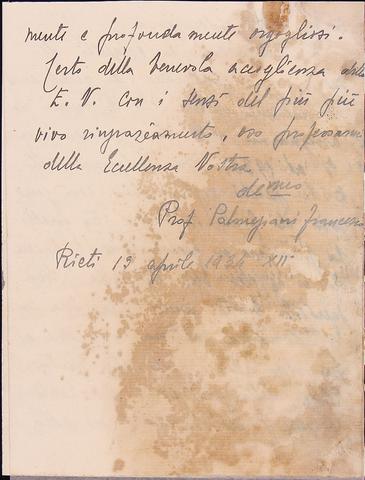 mente e profondamente orgogliosi.
Certo della benevola accoglienza della
E. V. con i sensi del più più
vivo ringraziamento, oso professarmi
della Eccellenza Vostra
dev.mo
Prof Palmegiani Francesco
Rieti 19 aprile 1934 XII